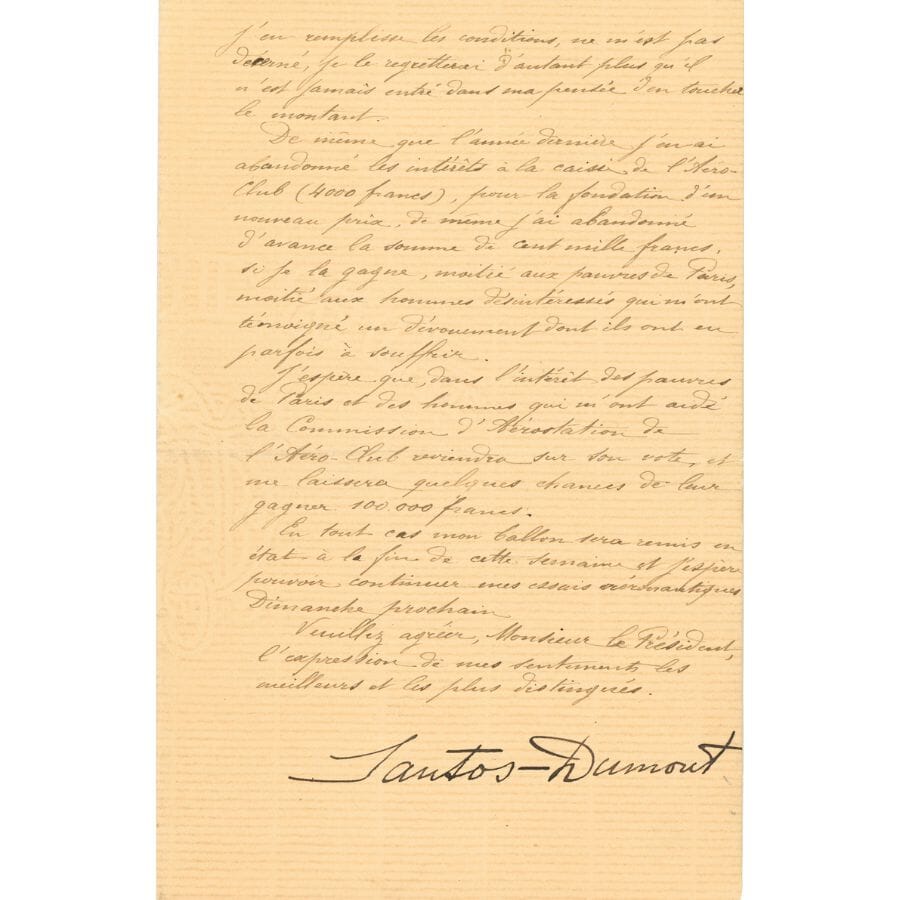 j'en remplisse les conditions, ne m'est pas
décerné, je le regretterai d'autant plus qu'il
n'est jamais entré dans ma pensée d'en toucher
le montant.
De même que l'année dernière j'en ai
abandonné les intérêts à la caisse de l'Aéro-
Club (4000 francs), pour la fondation d'un
nouveau prix, de même j'ai abandonné
d'avance la somme de cent mille francs,
si je la gagne, moitié aux pauvres de Paris,
moitié aux hommes désintéressés qui m'ont
témoigné un dévouement dont ils ont eu
parfois à souffrir.
J'espère que, dans l'intérêt des pauvres
de Paris et des hommes qui m'ont aidé
la Commission d'Aérostation de
l'Aéro-Club reviendra sur son vote, et
me laissera quelques chances de leur
gagner 100.000 francs.
En tout cas mon ballon sera remis en
état à la fin de cette semaine et j'espère
pouvoir continuer mes essais aéronautiques
Dimanche prochain
Veuillez agréer, Monsieur le Président,
l'expression de mes sentiments les
meilleurs et les plus distingués.
Santos-Dumont